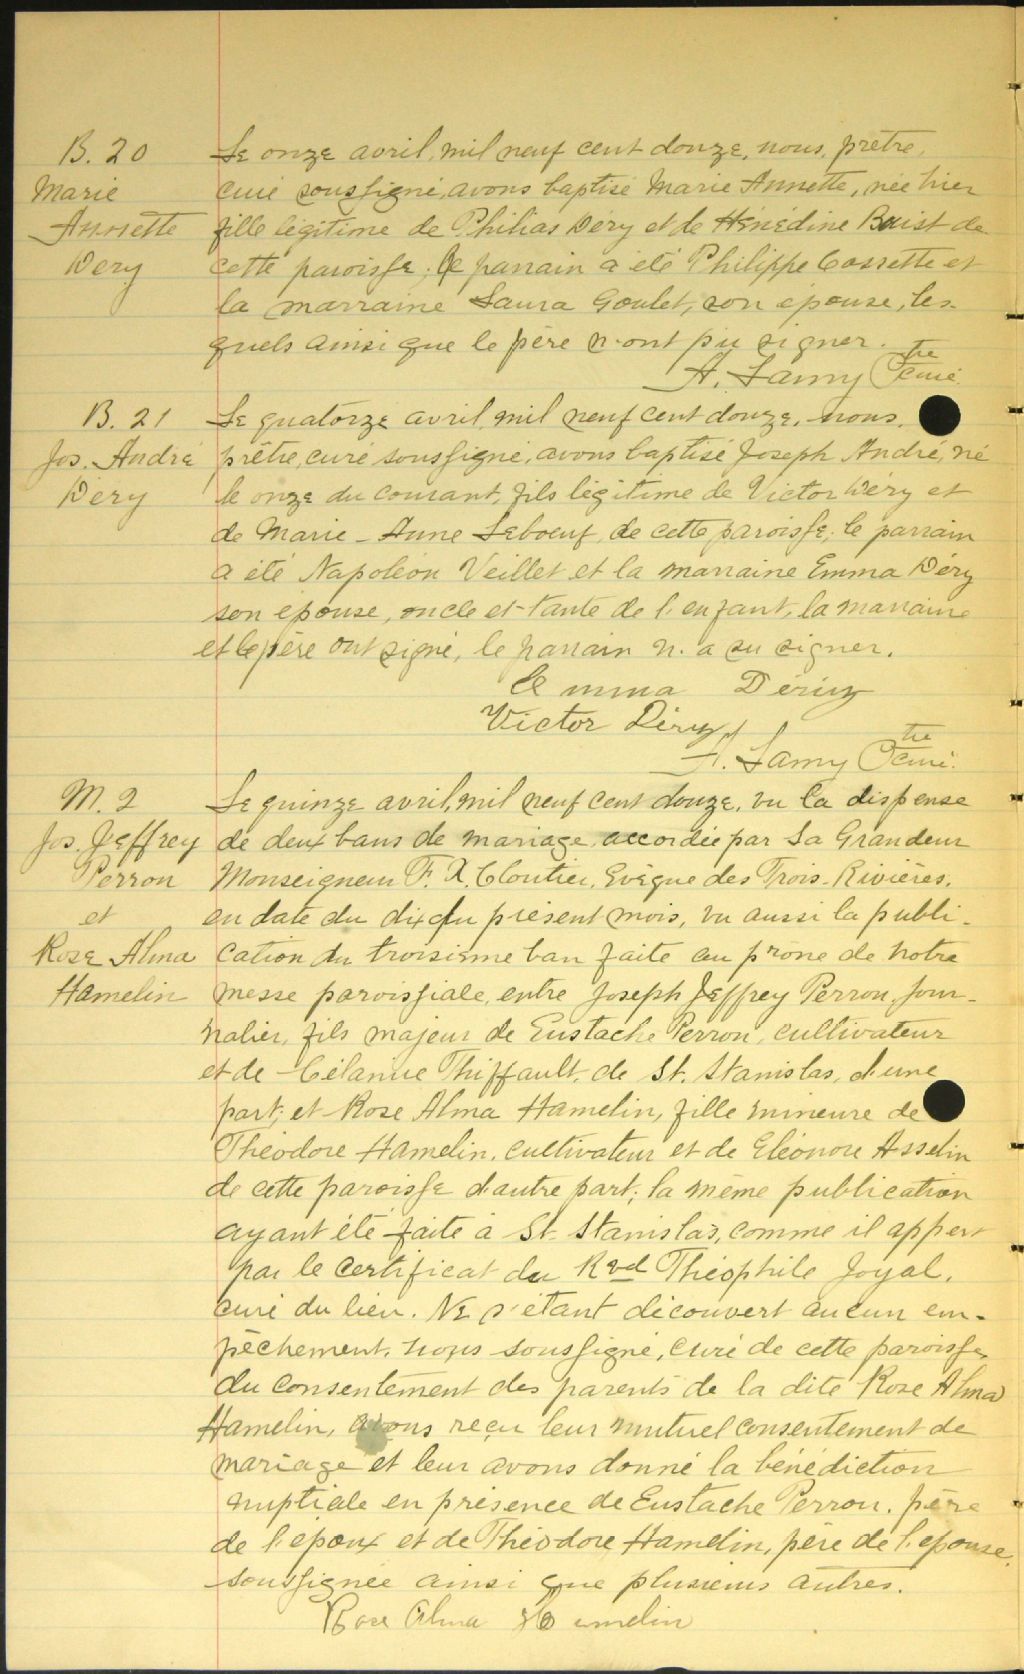 B. 20
Marie
Annette
Dery
Le onze avril, mil neuf cent douze, nous, prêtre,
curé soussigné, avons baptisé Marie Annette, née hier
fille légitime de Philias Déry et de Hénédine de
cette paroisse; le parrain a été Philippe Cossette et
la marraine Laura Goulet, son épouse, les-
quels ainsi que le père n'ont pu signer.
A. Lamy Ptre curé.
B. 21
Jos. André
Déry
Le quatorze avril, mil neuf cent douze, nous,
prêtre, curé soussigné, avons baptisé Joseph André, né
le onze du courant, fils légitime de Victor Déry et
de Marie-Anne Leboeuf, de cette paroisse; le parrain
a été Napoléon Veillet et la marraine Emma Déry
son épouse, oncle et tante de l'enfant, la marraine
et le père ont signé, le parrain n'a su signer.
Emma Déry
Victor Déry
A. Lamy Ptre curé.
M. 2
Jos. Jeffrey
Perron
et
Rose Alma
Hamelin
Le quinze avril, mil neuf cent douze, vu la dispense
de deux bans de mariage accordée par Sa Grandeur
Monseigneur F. X. Cloutier, Evêque des Trois-Rivières,
en date du dix du présent mois, vu aussi la publi-
cation du troisième ban faite au prône de notre
messe paroissiale, entre Joseph Jeffrey Perron, jour-
nalier, fils majeur de Eustache Perron, cultivateur
et de Célanie Thiffault, de St. Stanislas, d'une
part; et Rose Alma Hamelin, fille mineure de
Théodore Hamelin, cultivateur et de Eléonore Asselin
de cette paroisse d'autre part; la même publication
ayant été faite à St. Stanislas, comme il appert
par le certificat du Rvd Théophile Joyal,
curé du lieu. Ne s'étant découvert aucun em-
pêchement, nous soussigné, curé de cette paroisse,
du consentement des parents de la dite Rose Alma
Hamelin, avons reçu leur mutuel consentement de
mariage et leur avons donné la bénédiction
nuptiale en présence de Eustache Perron, père
de l'époux et de Théodore Hamelin, père de l'épouse
soussignée ainsi que plusieurs autres.
Rose Alma Hamelin